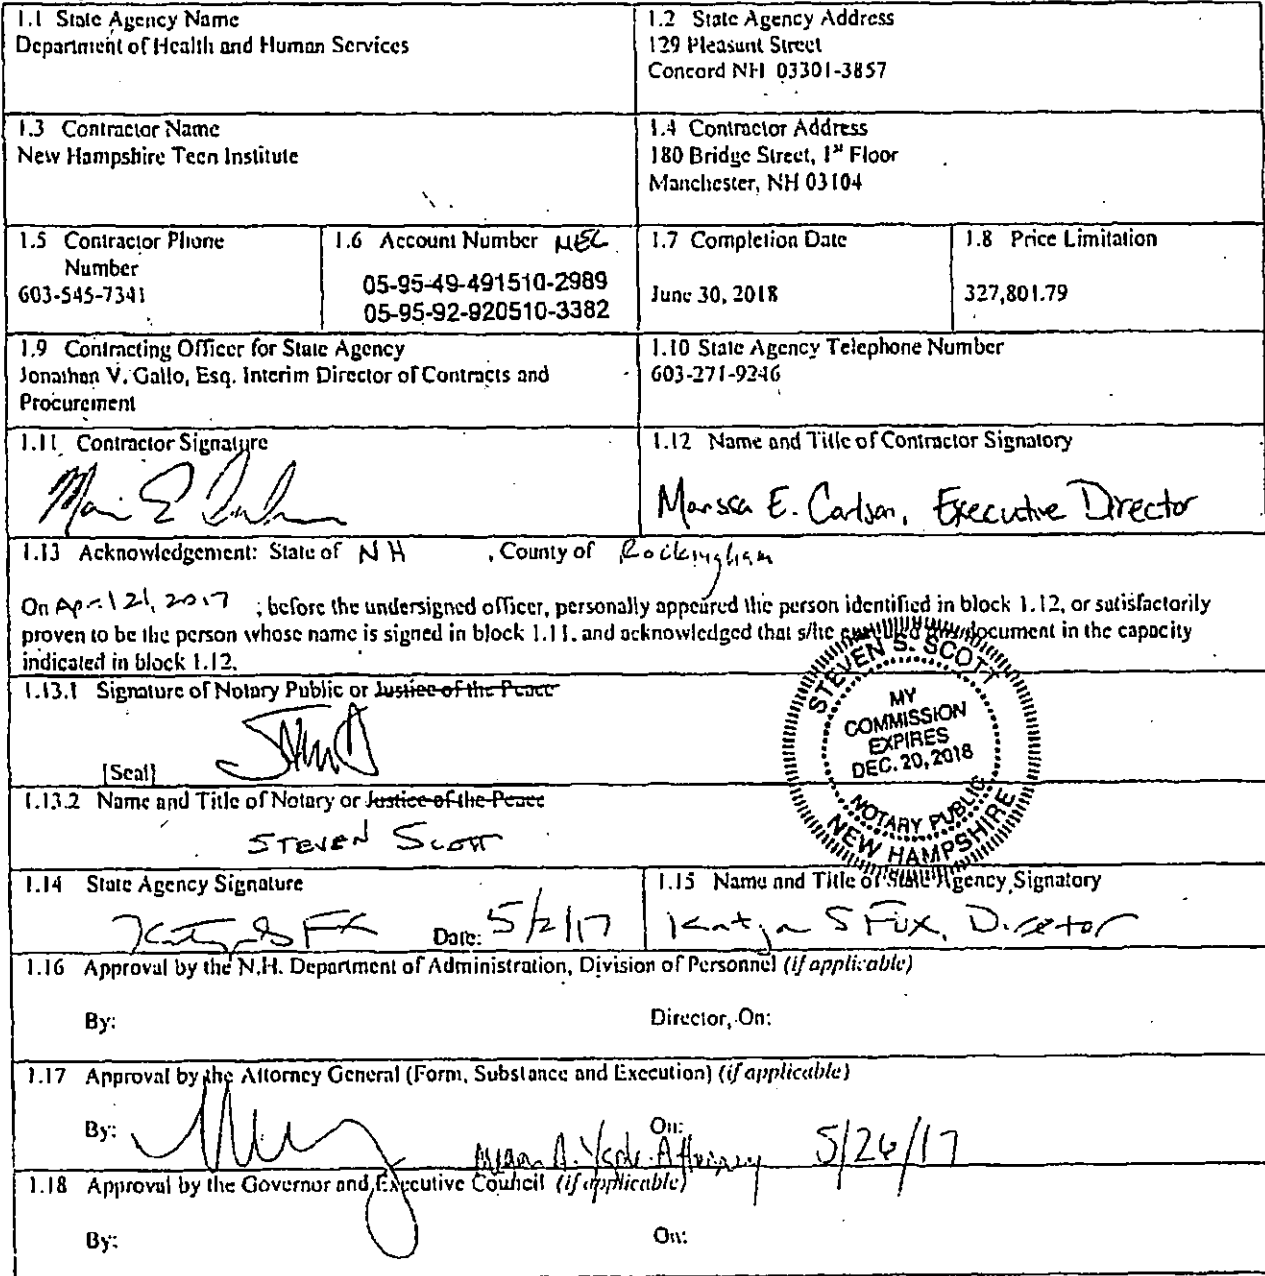 1.1 State Agency Name
Department of Health and Human Services
1.2 State Agency Address
129 Pleasant Street
Concord NH 03301-3857
1.3 Contractor Name
New Hampshire Teen Institute
1.4 Contractor Address
180 Bridge Street, 1st Floor
Manchester, NH 03104
1.5 Contractor Phone
Number
603-545-7341
1.6 Account Number
05-95-49-491510-2989
05-95-92-920510-3382
1.7 Completion Date
June 30, 2018
1.8 Price Limitation
327,801.79
1.9 Contracting Officer for State Agency
Jonathan V. Gallo, Esq. Interim Director of Contracts and
Procurement
1.10 State Agency Telephone Number
603-271-9246
1.11 Contractor Signature
1.12 Name and Title of Contractor Signatory
Marissa E. Carlson, Executive Director
1.13 Acknowledgement: State of NH , County of Rockingham
On April 21, 2017 , before the undersigned officer, personally appeared the person identified in block 1.12, or satisfactorily
proven to be the person whose name is signed in block 1.11, and acknowledged that s/he document in the capacity
indicated in block 1.12.
1.13.1 Signature of Notary Public or Justice of the Peace
[Seal]
STEVEN S. SCOTT
MY
COMMISSION
EXPIRES
DEC. 20, 2018
NOTARY PUBLIC
NEW HAMPSHIRE
1.13.2 Name and Title of Notary or Justice of the Peace
STEVEN SCOTT
1.14 State Agency Signature
Date: 5/2/17
1.15 Name and Title of State Agency Signatory
Katja S Fox, Director
1.16 Approval by the N.H. Department of Administration, Division of Personnel (if applicable)
By:
Director, On:
1.17 Approval by the Attorney General (Form, Substance and Execution) (if applicable)
By:
On:
Attorney 5/26/17
1.18 Approval by the Governor and Executive Council (if applicable)
By:
On: